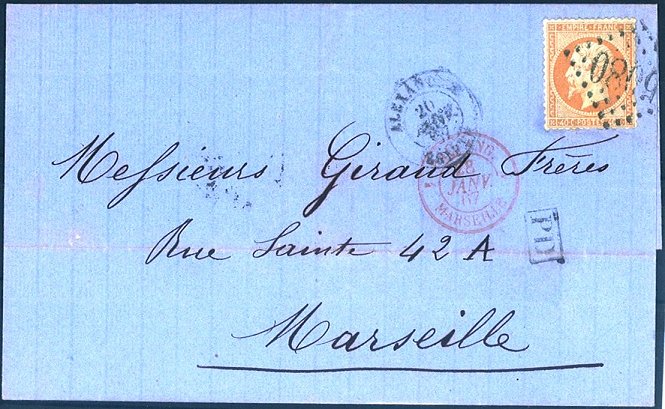 EMPIRE FRANC
40 C POSTES 40 C
5080
20
JANV.
67
JANV.
67
MARSEILLE
Messieurs Giraud Frères
PD
Rue Sainte 42 A
Marseille